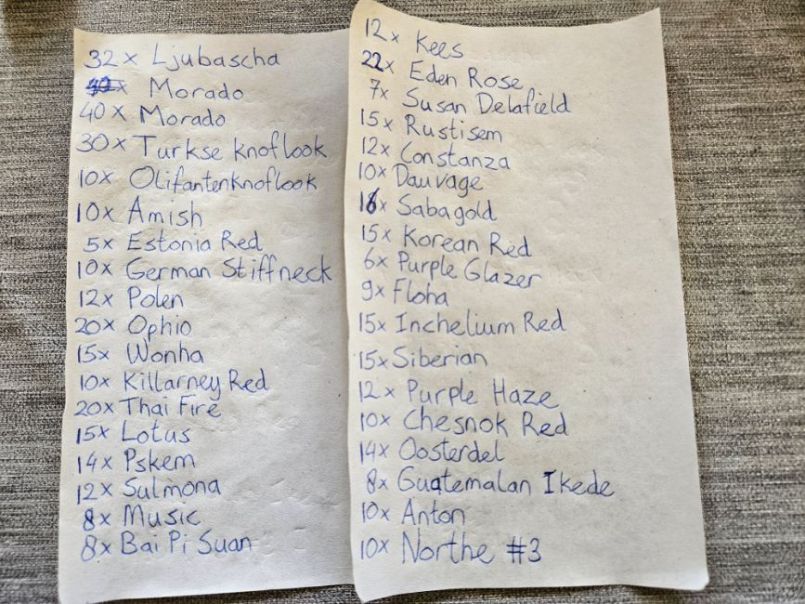 32x Ljubascha
Morado
40x Morado
30x Turkse knoflook
10x Olifantenknoflook
10x Amish
5x Estonia Red
10x German Stiffneck
12x Polen
20x Ophio
15x Wonha
10x Killarney Red
20x Thai Fire
15x Lotus
14x Pskem
12x Sulmona
8x Music
8x Bai Pi Suan
12x Kees
22x Eden Rose
7x Susan Delafield
15x Rustisem
12x Constanza
10x Dauvage
16x Sabagold
15x Korean Red
6x Purple Glazer
9x Floha
15x Inchelium Red
15x Siberian
12x Purple Haze
10x Chesnok Red
14x Oosterdel
8x Guatemalan Ikede
10x Anton
10x Northe #3